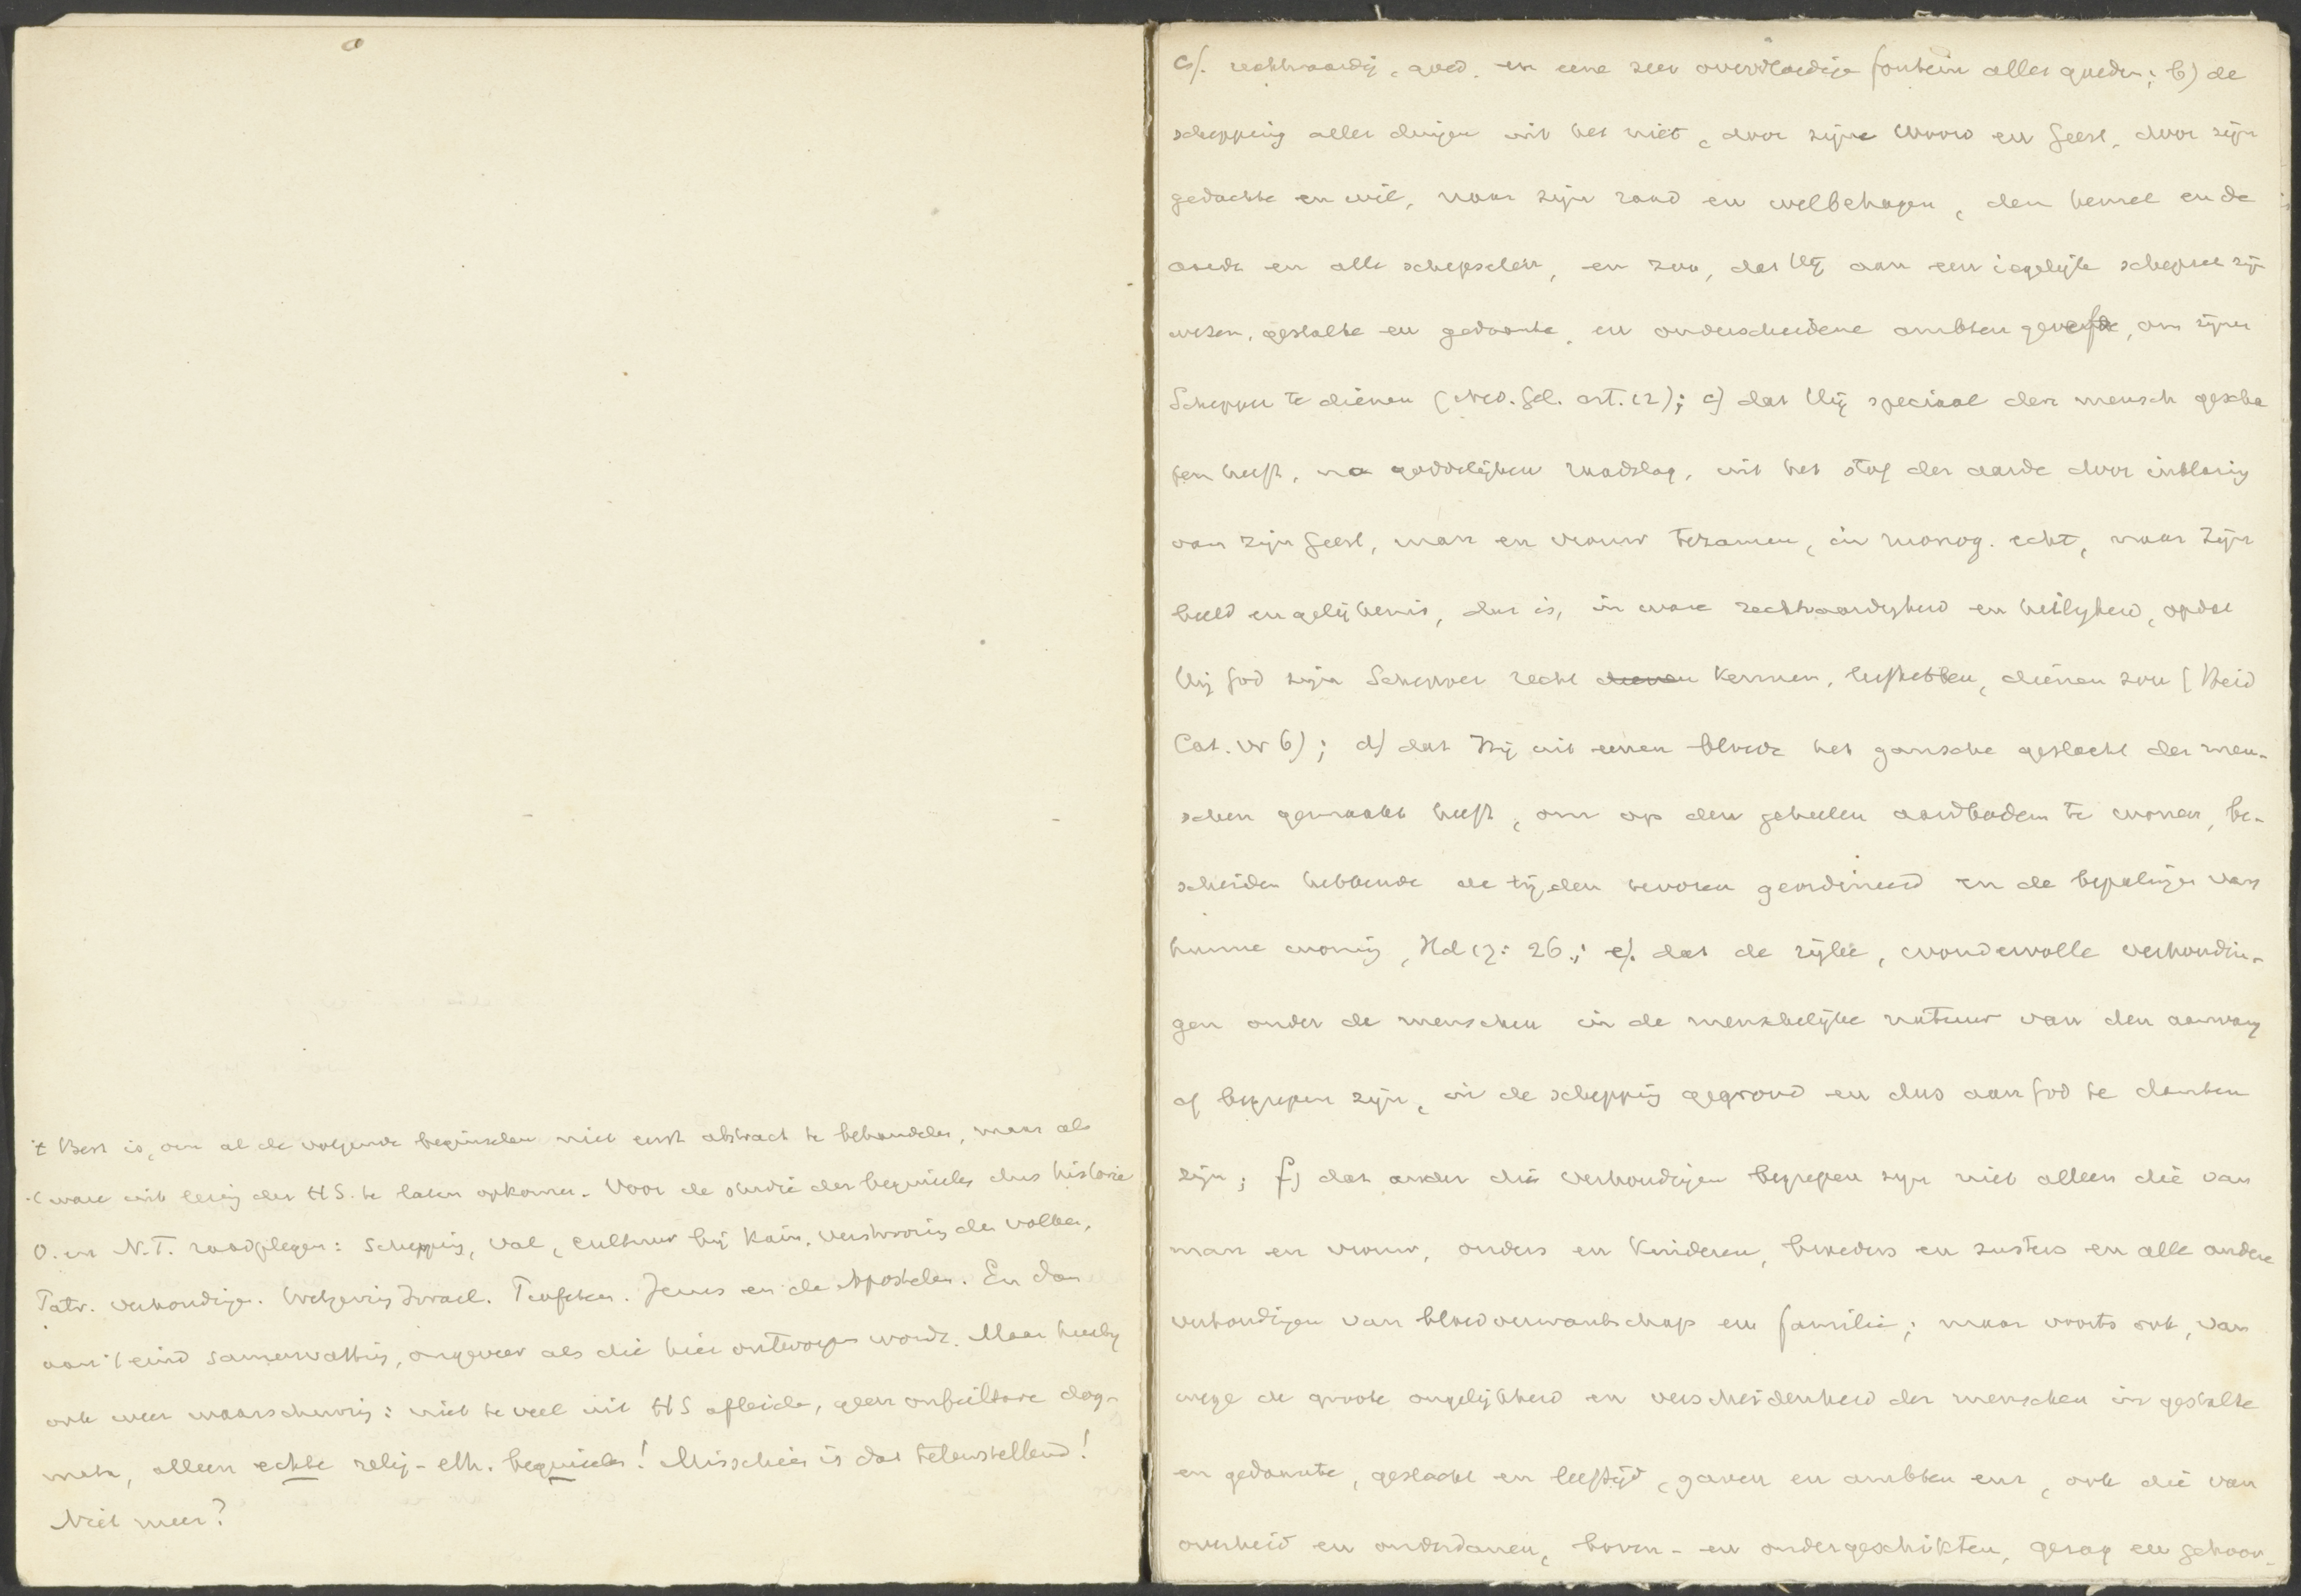 't Best is, om al de volgende beginselen niet eerst abstract te behandelen, maar als
't ware uit lezing der H S. te laten opkomen. Voor de studie der beginselen dus historie
O. en N. T. raadplegen: Schepping, val, cultuur bij Kain, verstrooiing der volken,
Patr. verhoudingen. Wetgeving Israel. Profeten. Jezus en de Apostelen. En dan
aan 't eind samenvatting, ongeveer als die hier ontworpen wordt. Maar hierbij
ook weer waarschuwing: niet te veel uit H S afleiden, geen onfeilbare dog-
mata, alleen echte relig-eth. beginselen! Misschien is dat teleurstellend!
Niet meer?
rechtvaardig, goed, en eene zeer overvloedige fontein aller goeden; b) de
schepping aller dingen uit het niet, door zijne Woord en Geest, door zijn
gedachte en wil, naar zijn raad en welbehagen, den hemel en de
aarde en alle schepselen, en zoo, dat Hij aan een iegelijk schepsel zijn
wezen, gestalte en gedaante, en onderscheidene ambten, om zijnen
Schepper te dienen (Ned. Gel. art. 12); c) dat Hij speciaal den mensch gescha
pen heeft, na goddelijken raadslag, uit het stof der aarde door inblazing
van zijn Geest, man en vrouw tezamen, in monog. echt, naar Zijn
beeld en gelijkenis, dat is, in ware rechtvaardigheid en heiligheid, opdat
hij God zijn Schepper recht dienen kennen, liefhebben, dienen zou (Heid
Cat. vr 6); d) dat Hij uit eenen bloede het gansche geslacht der men-
schen gemaakt heeft, om op den geheelen aardbodem te wonen, be-
scheiden hebbende de tijden tevoren geordineerd en de bepalingen van
hunne woning, Hd 17: 26.; e). dat de rijke, wondervolle verhoudin-
gen onder de menschen in de menschelijke natuur van den aanvang
af begrepen zijn, in de schepping gegrond en dus aan God te danken
zijn; f) dat onder die verhoudingen begrepen zijn niet alleen die van
man en vrouw, ouders en kinderen, broeders en zusters en alle andere
verhoudingen van bloedverwantschap en familie; maar voorts ook, van
wege de groote ongelijkheid en verscheidenheid der menschen in gestalte
en gedaante, geslacht en leeftijd, gaven en ambten enz, ook die van
overheid en onderdanen, boven- en ondergeschikten, gezag en gehoor-